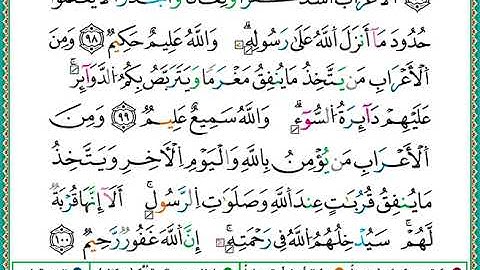 ٱلْأَعْرَابُ أَشَدُّ كُفْرًا وَنِفَاقًا وَأَجْدَرُ أَلَّا يَعْلَمُوا
حُدُودَ مَآ أَنزَلَ ٱللَّهُ عَلَىٰ رَسُولِهِۦ وَٱللَّهُ عَلِيمٌ حَكِيمٌ ٩٨ وَمِنَ
ٱلْأَعْرَابِ مَن يَتَّخِذُ مَا يُنفِقُ مَغْرَمًا وَيَتَرَبَّصُ بِكُمُ ٱلدَّوَآئِرَ
عَلَيْهِمْ دَآئِرَةُ ٱلسُّوٓءِ وَٱللَّهُ سَمِيعٌ عَلِيمٌ ٩٩ وَمِنَ
ٱلْأَعْرَابِ مَن يُؤْمِنُ بِٱللَّهِ وَٱلْيَوْمِ ٱلْآخِرِ وَيَتَّخِذُ
مَا يُنفِقُ قُرُبَٰتٍ عِندَ ٱللَّهِ وَصَلَوَٰتِ ٱلرَّسُولِ أَلَآ إِنَّهَا قُرْبَةٌ
لَّهُمْ سَيُدْخِلُهُمُ ٱللَّهُ فِى رَحْمَتِهِۦٓ إِنَّ ٱللَّهَ غَفُورٌ رَّحِيمٌ ١٠٠